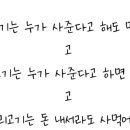 기는 누가 사준다고 해도 
고
기는 누가 사준다고 하면
고
리고기는 돈 내서라도 사먹어